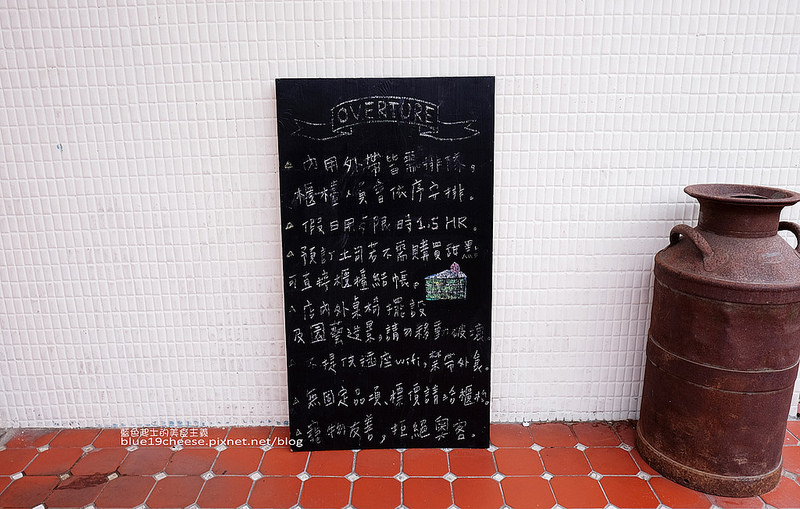 OVERTURE
△ 內用外帶皆需排隊,
櫃檯人員會依序安排。
△ 假日用餐限時1.5HR。
△ 預訂土司若不需購買甜點
可直接櫃檯結帳。
△ 店內外桌椅擺設
及園藝造景,請勿移動破壞。
△ 不提供插座wifi,禁帶外食。
△ 無固定品項、標價請洽櫃檯
△ 寵物友善,拒絕奧客。
藍色起士的美食主義
blue19cheese.pixnet.net/blog